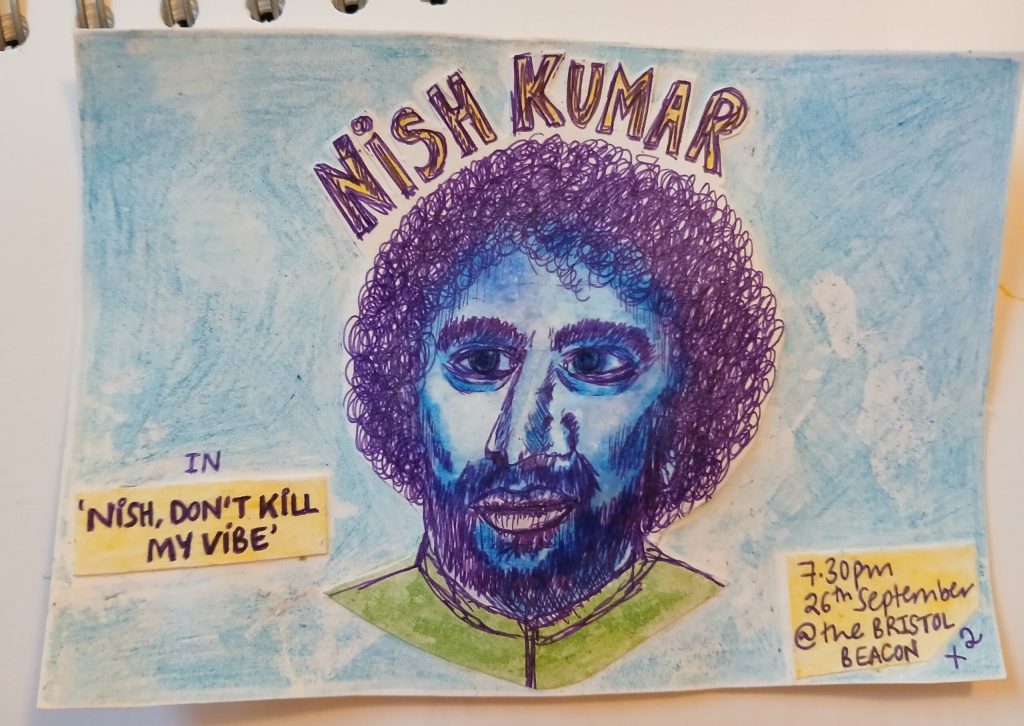 NiSH KUMAR
IN
'NiSH, DON'T KiLL
MY ViBE'
7.30pm
26th September
@the BRISTOL
BEACON
+2